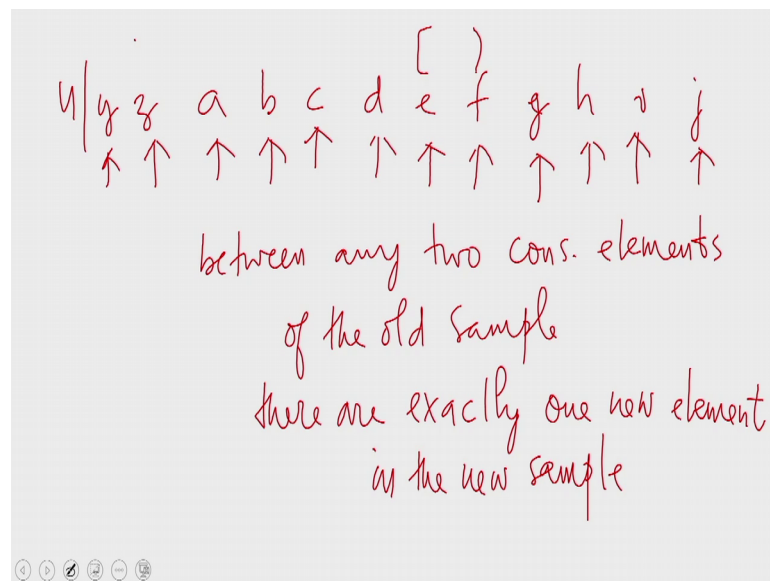 [ )
4/ y z a b c d e f g h i j
↑ ↑ ↑ ↑ ↑ ↑ ↑ ↑ ↑ ↑ ↑ ↑
between any two cons. elements
of the old sample
there are exactly one new element
in the new sample